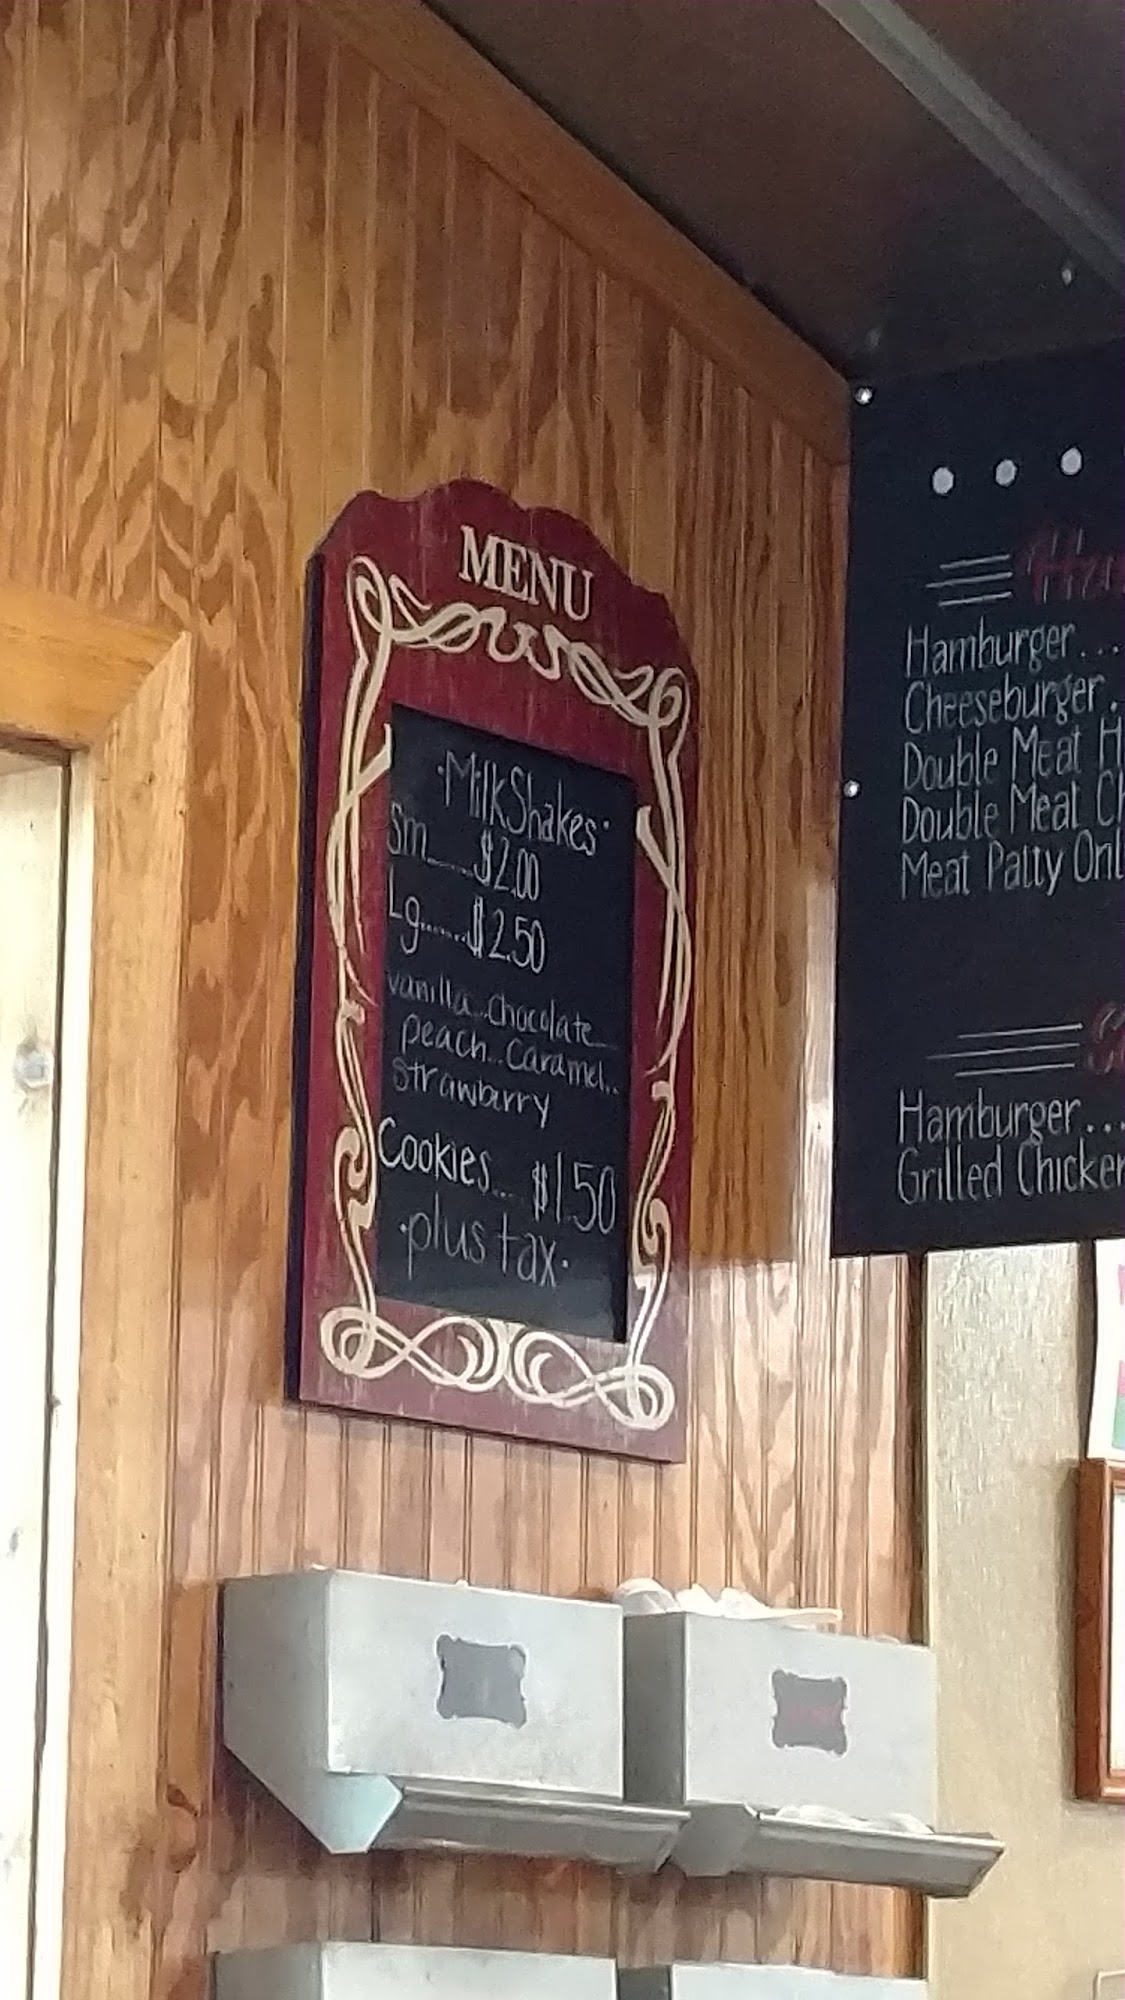 MENU
·MilkShakes·
Sm......$2.00
Lg.......$2.50
vanilla...chocolate...
peach...caramel..
strawberry
Cookies... $1.50
·plus tax·
Hamburger...
Cheeseburger.
Double Meat
Double Meat
Meat Patty
Hamburger...
Grilled